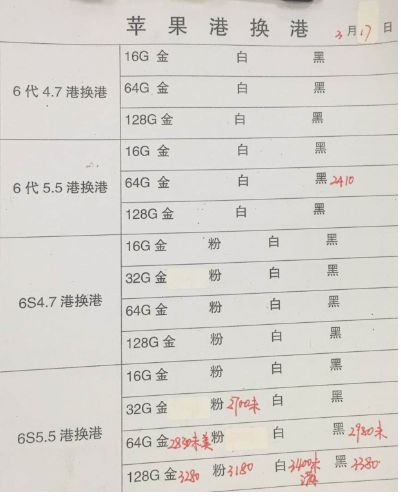 苹果港换港 3月17日
16G 金 白 黑
6代4.7港换港 64G 金 白 黑
128G 金 白 黑
16G 金 白 黑
6代5.5港换港 64G 金 白 黑2410
128G 金 白 黑
16G 金 粉 白 黑
32G 金 粉 白 黑
6S4.7港换港 64G 金 粉 白 黑
128G 金 粉 白 黑
16G 金 粉 白 黑
32G 金 粉2700未 白 黑
6S5.5港换港 64G 金2830未美 粉 白 黑2980未
128G 金3280 粉3180 白3400未 黑3380